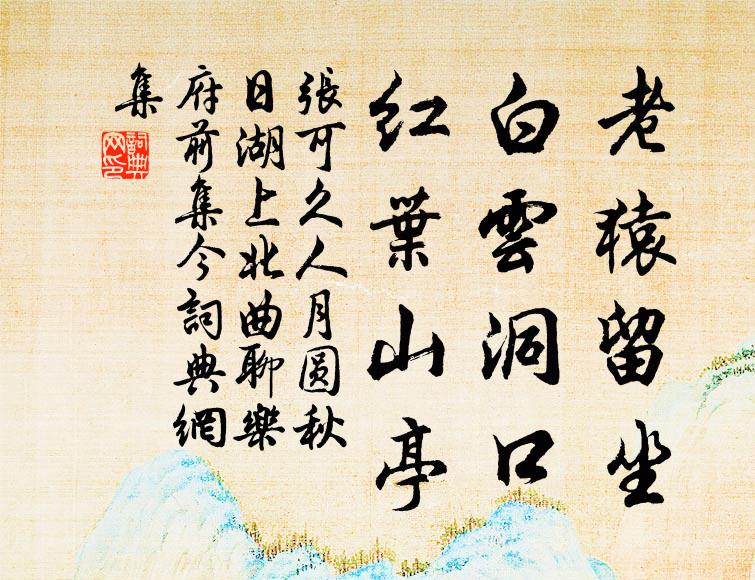 老猿留坐
白雲洞口
紅葉山亭
張可久人月圓秋
日湖上北曲聊樂
府前集今詞典網
集
詞典網印